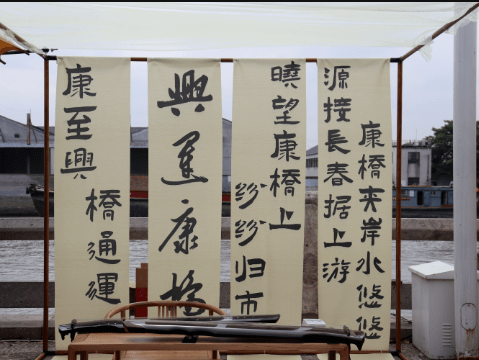 康橋夾岸水悠悠
源接長春据上游
曉望康橋上
紛紛归市
興運康橋
橋通運
康至興